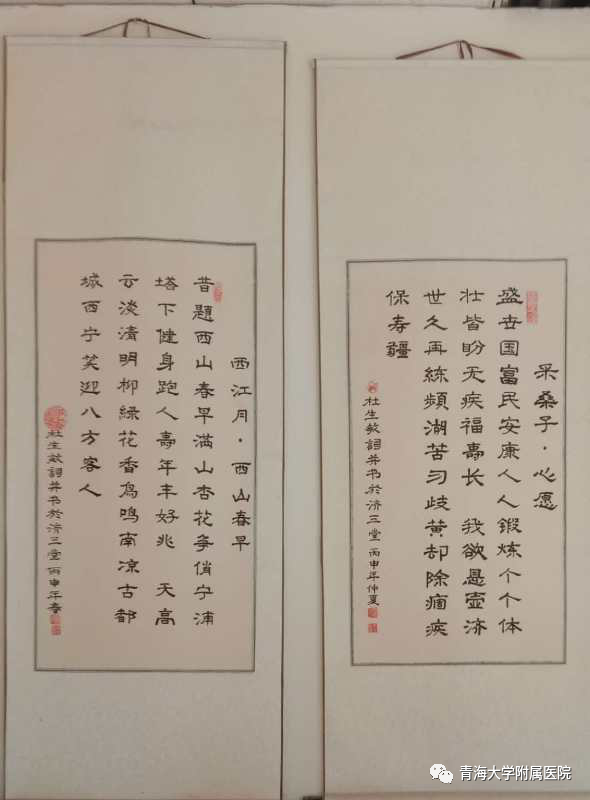 采桑子·心愿
盛世国富民安康人人锻炼个个体
壮皆盼无疾福寿长 我欲悬壶济
世久再練頻湖苦习歧黄却除痼疾
保寿疆
杜生敏詞并书於济三堂 丙申年仲夏
西江月·西山春早
昔題西山春早滿山杏花争俏宁浦
塔下健身跑人寿年丰好兆 天高
云淡清明柳绿花香鸟鸣南凉古都
城西宁笑迎八方客人
杜生敏詞并书於济三堂丙申年春
青海大学附属医院